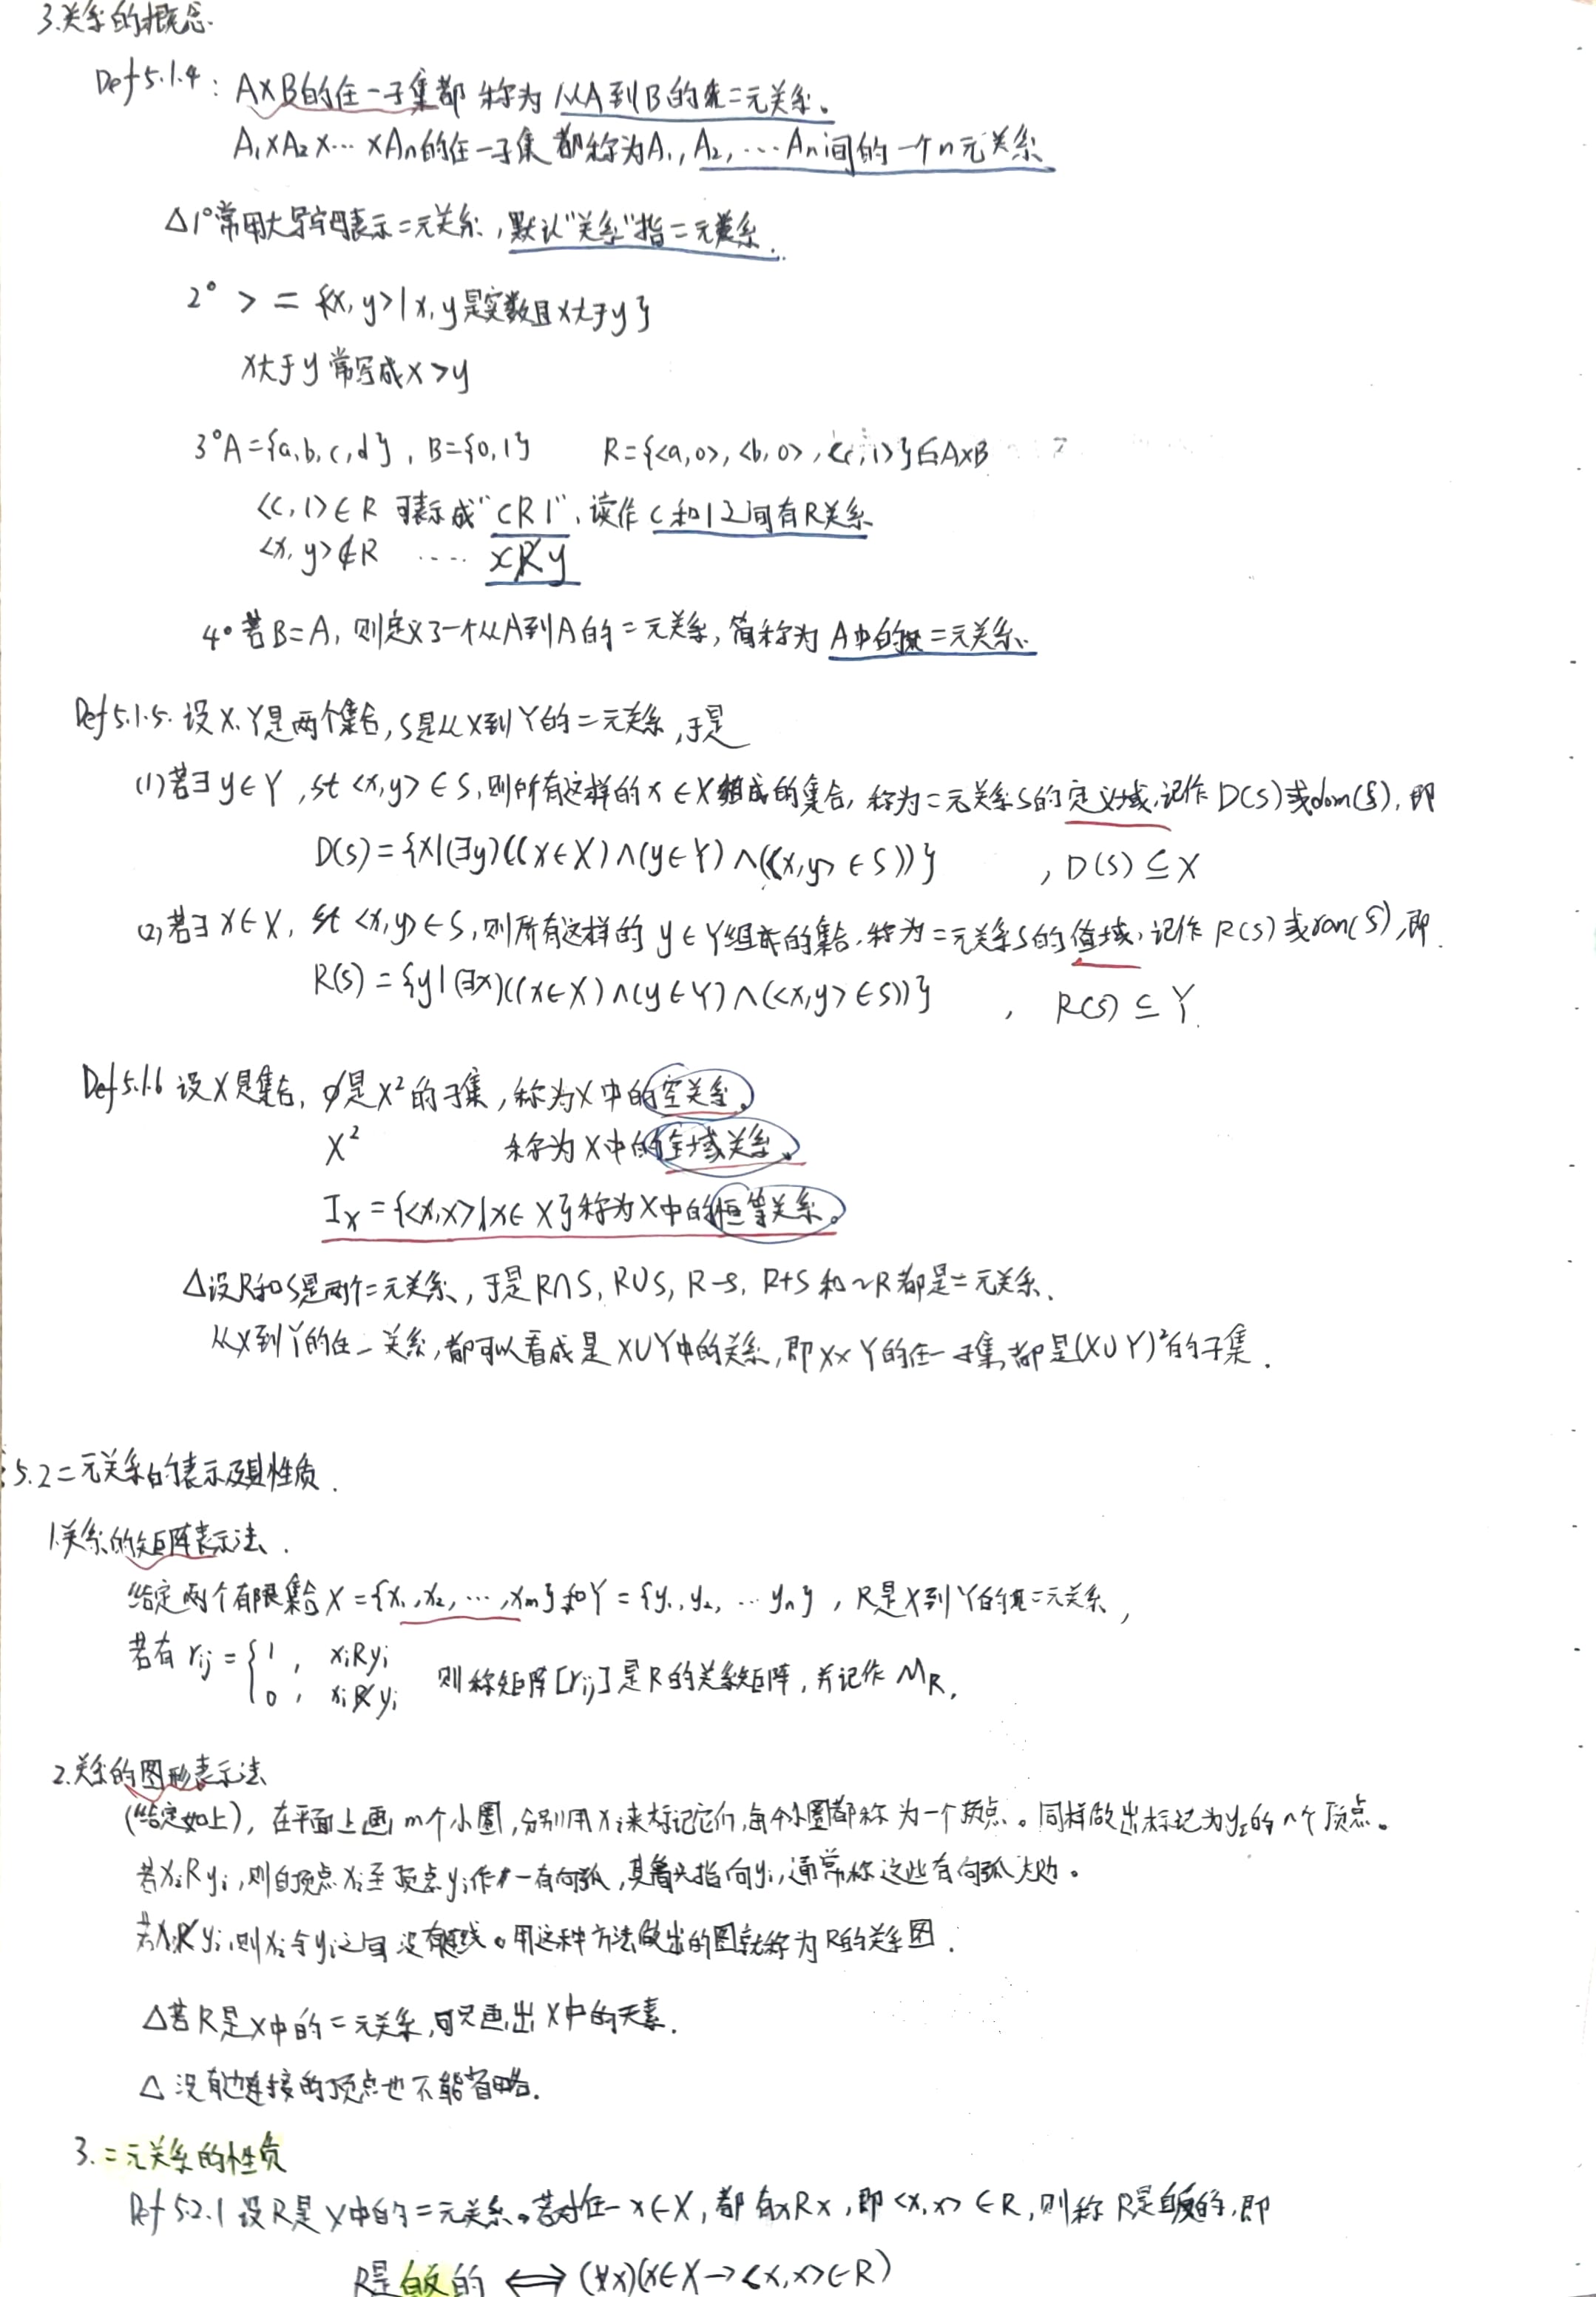 3.关系的概念.
Def 5.1.4: A×B的任一子集都称为从A到B的二元关系。
A₁×A₂×⋯×Aₙ的任一子集都称为A₁,A₂,⋯Aₙ间的一个n元关系
△1°常用大写字母表示二元关系,默认"关系"指二元关系.
2° > = {<x,y>|x,y是实数且x大于y}
x大于y常写成x>y
3°A={a,b,c,d}, B={0,1} R={<a,0>,<b,0>,<c,1>}⊆A×B
<c,1>∈R 可表示成"cR1",读作c和1之间有R关系
<x,y>∉R ⋯⋯ xR̸y
4°若B=A,则定义了一个从A到A的二元关系,简称为A中的二元关系.
Def 5.1.5.设X、Y是两个集合,S是从X到Y的二元关系,于是
(1)若∃y∈Y,st <x,y>∈S,则所有这样的x∈X组成的集合,称为二元关系S的定义域,记作D(S)或dom(S),即
D(S)={x|(∃y)((x∈X)∧(y∈Y)∧(<x,y>∈S))} , D(S)⊆X
(2)若∃x∈X, st <x,y>∈S,则所有这样的y∈Y组成的集合,称为二元关系S的值域,记作R(S)或ran(S),即.
R(S)={y|(∃x)((x∈X)∧(y∈Y)∧(<x,y>∈S))} , R(S)⊆Y.
Def 5.1.6 设X是集合, ∅是X²的子集,称为X中的空关系。
X² 称为X中的全域关系。
Iₓ={<x,x>|x∈X}称为X中的恒等关系。
△设R和S是两个二元关系,于是R∩S, R∪S, R-S, R+S和~R都是二元关系.
从X到Y的任一关系,都可以看成是X∪Y中的关系,即X×Y的任一子集都是(X∪Y)²的子集.
5.2二元关系的表示及其性质.
1.关系的矩阵表示法.
给定两个有限集合X={x₁,x₂,⋯,xₘ}和Y={y₁,y₂,⋯yₙ}, R是X到Y的二元关系,
若有 rᵢⱼ = { 1, xᵢRyⱼ
0, xᵢR̸yⱼ 则称矩阵[rᵢⱼ]是R的关系矩阵,并记作M_R.
2.关系的图形表示法
(给定如上),在平面上画m个小圈,分别用xᵢ来标记它们,每个小圈都称为一个顶点。同样做出标记为yᵢ的n个顶点。
若xᵢRyⱼ,则自顶点xᵢ至顶点yⱼ作一有向弧,其箭头指向yⱼ,通常称这些有向弧为边。
若xᵢR̸yⱼ,则xᵢ与yⱼ之间没有连线。用这种方法做出的图就称为R的关系图.
△若R是X中的二元关系,可只画出X中的元素.
△没有边连接的顶点也不能省略.
3.二元关系的性质
Def 5.2.1 设R是X中的二元关系。若对任一x∈X,都有xRx,即<x,x>∈R,则称R是自反的,即
R是自反的 ⟺ (∀x)(x∈X→<x,x>∈R)